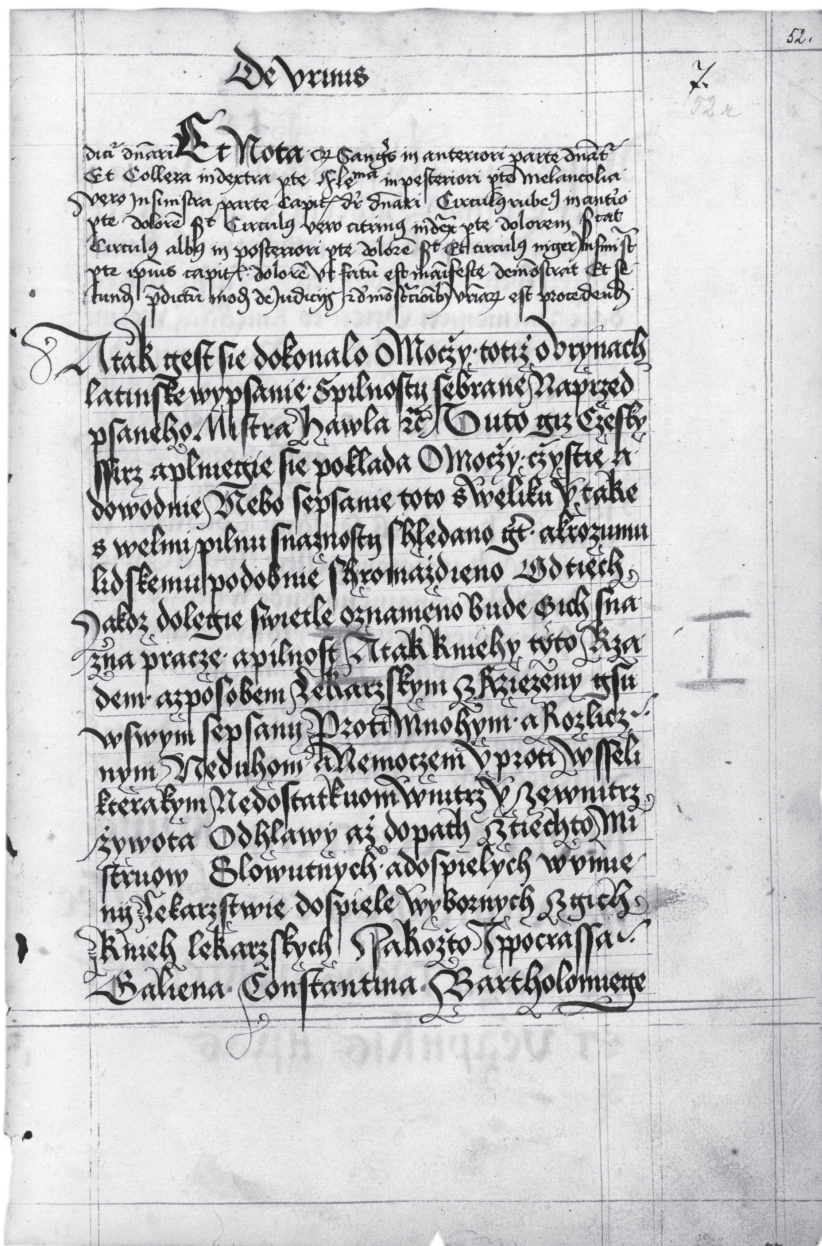 52.
De Vrinis
7.
52 r
dicit dn̄ari Et Nota ꝙ Sangꝰs in anteriori parte dn̄at᷑
Et Collera in dextra pte Fleᵐᵃ in posteriori pte Melancolia
vero In sinistra parte Capit dr̄ dn̄ari Circulꝰ rubeꝰ in antio
pte dolorē st Circulꝰ vero citrinus in dex pte dolorem stat
Circulꝰ albꝰ in posteriori pte dolorē st Et circulꝰ niger In sinist
pte ipsius capit dolorē Vt fatū est manifeste demōstrat Et se
cund p̄dictū mod de Judicijs vrinar est procedend
A tak gest sie dokonalo O Moczy totiz o Vrynach
latinske wypsanie Spilnostij sebrane Naprzed
psaneho Mistra Hawla ꝛc̄ Tuto giz Czesky
ssirz a plniegie sie poklada O Moczy czystie a
dowodnie Nebo sepsanie toto s weliku y take
s welmi pilnu snaznosty shledano gt a k rozumu
lidskemu podobnie shromazdieno Od tiech
Jakoz dolegie swietle oznameno bude Gich sna
zna pracze a pilnost A tak kniehy toto Rza
dem a zposobem Lekarzskym Zrziezeny gsu
w swym sepsany Proti Mnohym a Rozlicz
nym Neduhom a Nemoczem Y proti Wsseli
kterakym Nedostatkuom Wnitrz y Zewnitrz
zywota Od hlawy az do pat Z tiechto Mi
struow Slowutnych a dospielych w vmie
nij Lekarzstwie dospiele Wybornych Z gich
Knieh lekarzskych Jakozto Ippocrassa
Galiena Constantina Bartholomiege
I